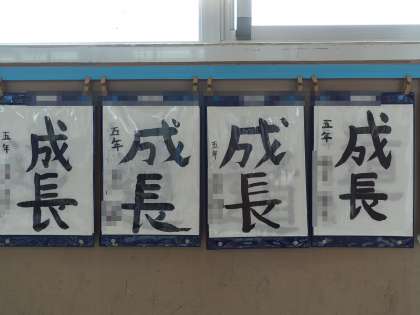 成長
五年
成長
五年
成長
五年
成長
五年